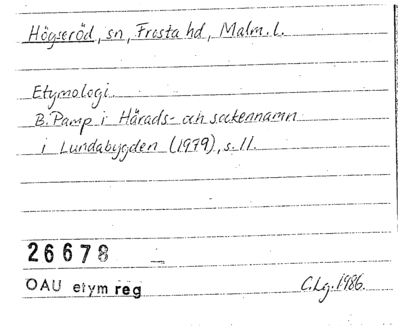 Högseröd, sn, Frosta hd, Malm. l.
Etymologi.
B. Pamp i Härads- och sockennamn
i Lundabygden (1979), s. 11.
26678
OAU etym reg
C.Lg. 1986.